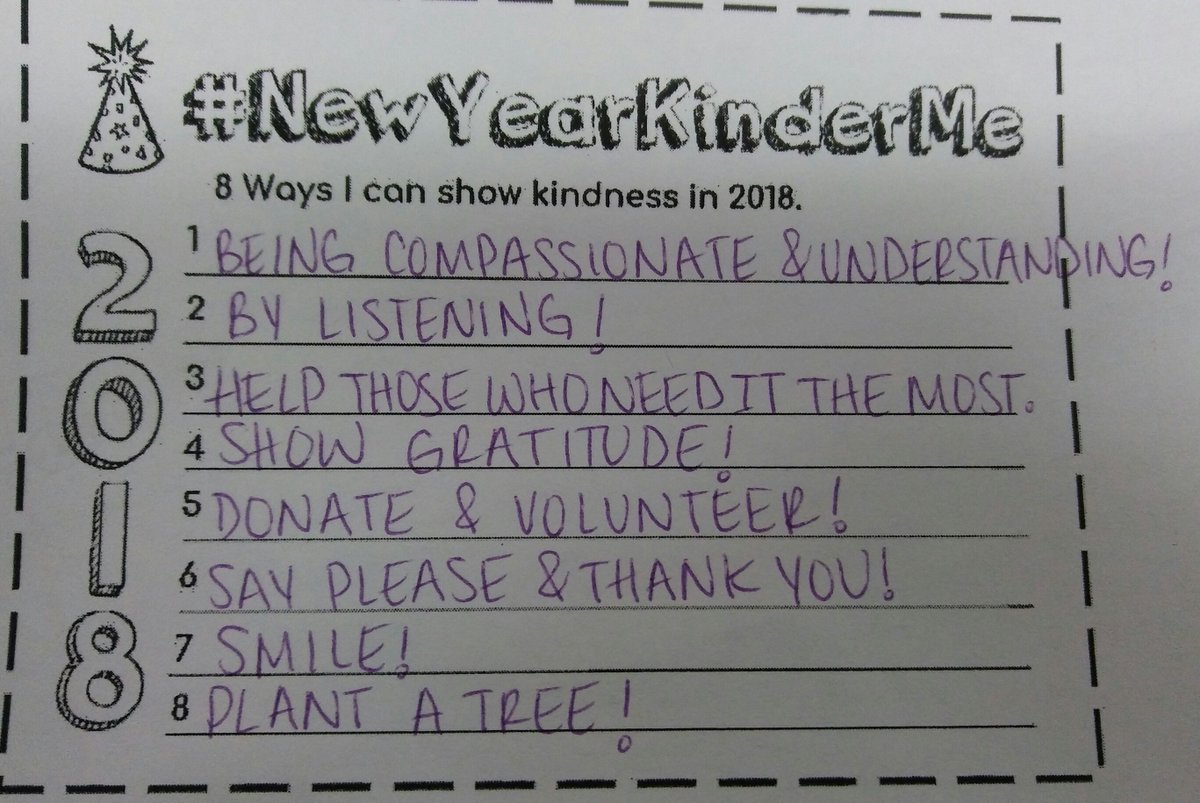 #NewYearKinderMe
8 Ways I can show kindness in 2018.
1 BEING COMPASSIONATE & UNDERSTANDING!
2 BY LISTENING!
3 HELP THOSE WHO NEED IT THE MOST.
4 SHOW GRATITUDE!
5 DONATE & VOLUNTEER!
6 SAY PLEASE & THANK YOU!
7 SMILE!
8 PLANT A TREE!
2
0
1
8